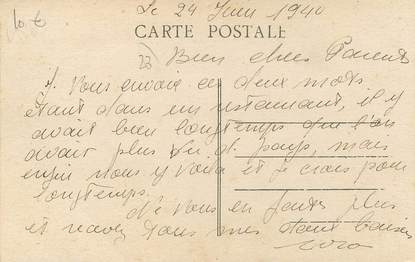 10 €
Le 24 Juin 1940
CARTE POSTALE
23) Bien chers Parents
Je vous envoie ces deux mots
étant dans un restaurant, il y
avait bien longtemps que l'on
avait plus vu de pays, mais
enfin nous y voila et je crois pour
longtemps.
Ne vous en faites plus
et recevez tous mes doux baisers